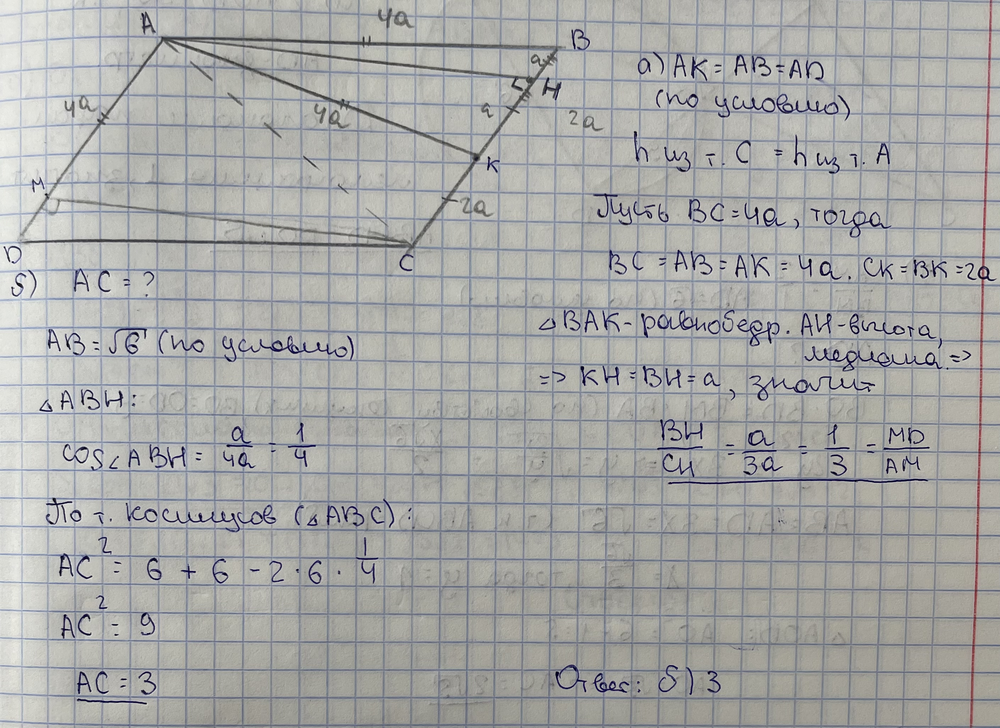 A
4a
B
a
H
4a
4a
a
2a
M
K
2a
D
C
а) AK = AB = AD
(по условию)
h из т. C = h из т. A
Пусть BC = 4a, тогда
BC = AB = AK = 4a. CK = BK = 2a
△BAK - равнобедр. AH - высота,
медиана =>
=> KH = BH = a, значит
BH/CH = a/3a = 1/3 = MD/AM
б) AC = ?
AB = √6 (по условию)
△ABH:
cos∠ABH = a/4a = 1/4
По т. косинусов (△ABC):
AC² = 6 + 6 - 2·6·1/4
AC² = 9
AC = 3
Ответ: б) 3